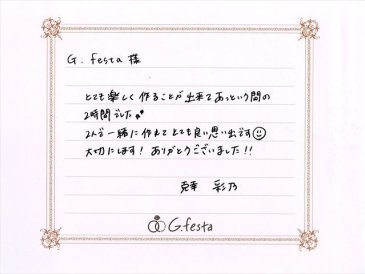 G. festa 様
とても楽しく作ることが出来てあっという間の
2時間でした
2人で一緒に作れてとても良い思い出です☺
大切にします! ありがとうございました!!
彩乃
G.festa